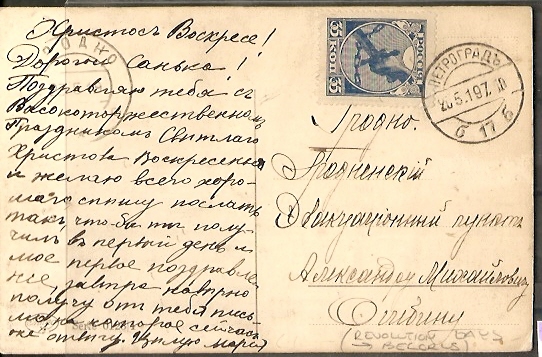 Христосъ Воскресе!
Дорогой Санька!
Поздравляю тебя съ
Высокоторжественнымъ
Праздникомъ Свитлаго
Христова Воскресенья
и желаю всего хоро-
шаго спишу послать
такъ, что-бы ты полу-
чилъ въ первый день и
мое первое поздравле-
ние, завтра наверно
получу отъ тебя пись-
мо на которое сейчасъ
же отвечу. Цѣлую
ГРОДНО
35 КОП. 35
РОССІЯ
ПЕТРОГРАДЪ
20.5.19
6 17 б
Гродно.
Гродненскій
Эвакуаціонный пунктъ
Александру Михайловичу
(REVOLUTION DAYS